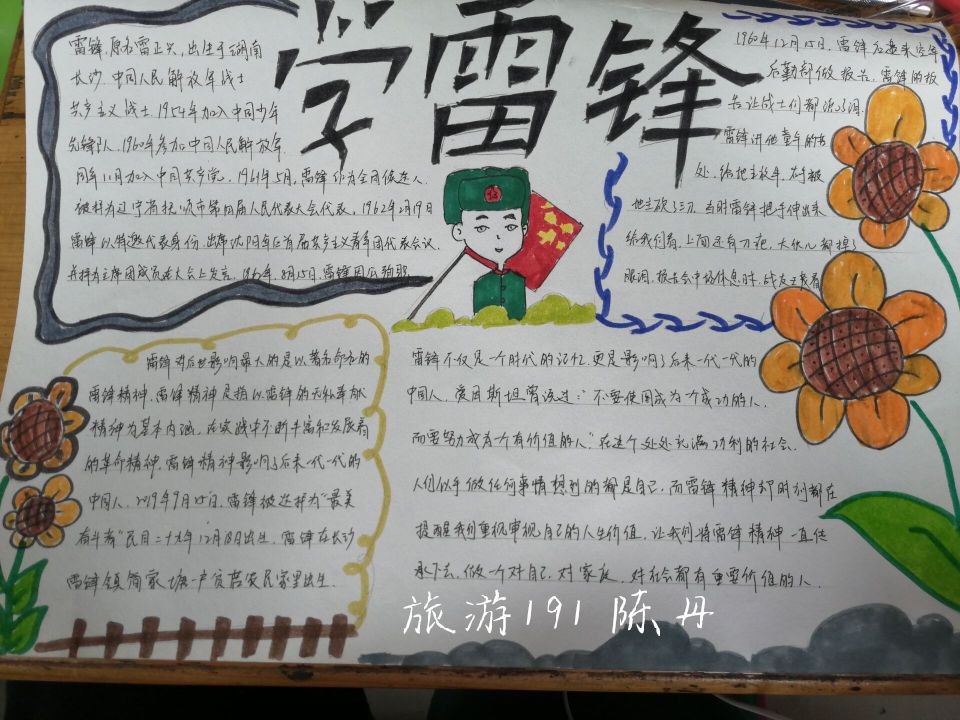 学雷锋
雷锋,原名雷正兴,出生于湖南
长沙.中国人民解放军战士
共产主义战士.1954年加入中国少年
先锋队,1960年参加中国人民解放军.
同年11月加入中国共产党.1961年5月,雷锋作为全团候选人.
被择为辽宁省抚顺市第四届人民代表大会代表,1962年2月19日
雷锋以特邀代表身份.出席沈阳军区首届共产主义青年团代表会议.
并择为主席团成员在大会上发言.1962年.8月15日,雷锋因公殉职.
1960年12月15日,雷锋应邀来空军
后勤部做报告,雷锋的报
告让战士们都流了泪.
雷锋讲他童年的苦
处.给地主放牛,右手被
地主砍了三刀.当时雷锋把手伸出来
给我们看.上面还有刀疤,大伙儿都掉了
眼泪.报告会中场休息时.战友王 看
雷锋对后世影响最大的是以著名命名的
雷锋精神.雷锋精神是指以雷锋的无私奉献
精神为基本内涵.在实践中不断丰富和发展着
的革命精神.雷锋精神影响了后来一代一代的
中国人.2019年9月25日,雷锋被选择为"最美
奋斗者"民国二十九年12月18日出生.雷锋在长沙
雷锋镇简家塘一户贫苦农民家里出生.
雷锋不仅是一个时代的记忆.更是影响了后来一代一代的
中国人,爱因斯坦曾说过:"不要使因成为一个成功的人.
而要努力成为一个有价值的人."在这个处处充满功利的社会.
人们似乎做任何事情想到的都是自己,而雷锋精神却时刻都在
提醒我们重视审视自己的人生价值.让我们将雷锋精神一直传
承下去.做一个对自己.对家庭.对社会都有重要价值的人.
旅游191 陈丹